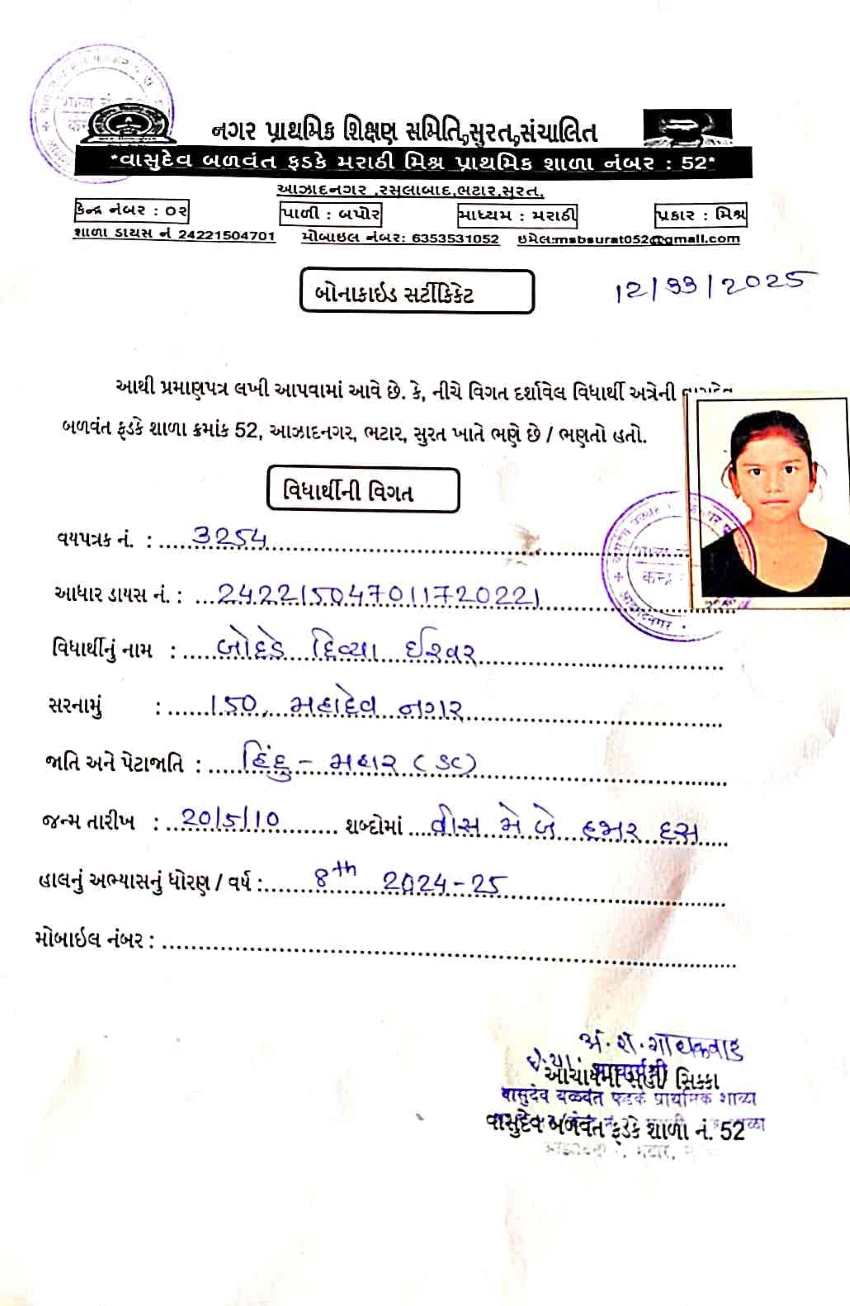 નગર પ્રાથમિક શિક્ષણ સમિતિ,સુરત,સંચાલિત
"વાસુદેવ બળવંત ફડકે મરાઠી મિશ્ર પ્રાથમિક શાળા નંબર : 52"
આઝાદનગર ,રસુલાબાદ,ભટાર,સુરત,
કેન્દ્ર નંબર : ૦૨ પાળી : બપોર માધ્યમ : મરાઠી પ્રકાર : મિશ્ર
શાળા ડાયસ નં 24221504701 મોબાઇલ નંબર: 6353531052 ઇમેલ:msbsurat052@gmail.com
બોનાફાઇડ સર્ટીફિકેટ 12/૧૧/2025
આથી પ્રમાણપત્ર લખી આપવામાં આવે છે. કે, નીચે વિગત દર્શાવેલ વિધાર્થી અત્રેની વાસુદેવ
બળવંત ફડકે શાળા ક્રમાંક 52, આઝાદનગર, ભટાર, સુરત ખાતે ભણે છે / ભણતો હતો.
વિધાર્થીની વિગત
વયપત્રક નં. : 3254
આધાર ડાયસ નં. : 242215047011720221
વિધાર્થીનું નામ : બોદડે દિવ્યા ઈશ્વર
સરનામું : 150, મહાદેવ નગર
જાતિ અને પેટાજાતિ : હિંદુ - મહાર (SC)
જન્મ તારીખ : 20/5/10 શબ્દોમાં વીસ મે બે હજાર દસ
હાલનું અભ્યાસનું ધોરણ / વર્ષ : 8th 2024-25
મોબાઇલ નંબર :
અ. શ. ગાયકવાડ
આચાર્યની સહી/ સિક્કા
વાસુદેવ બળવંત ફડકે પ્રાથમિક શાળા
વાસુદેવ બળવંત ફડકે શાળા નં. 52